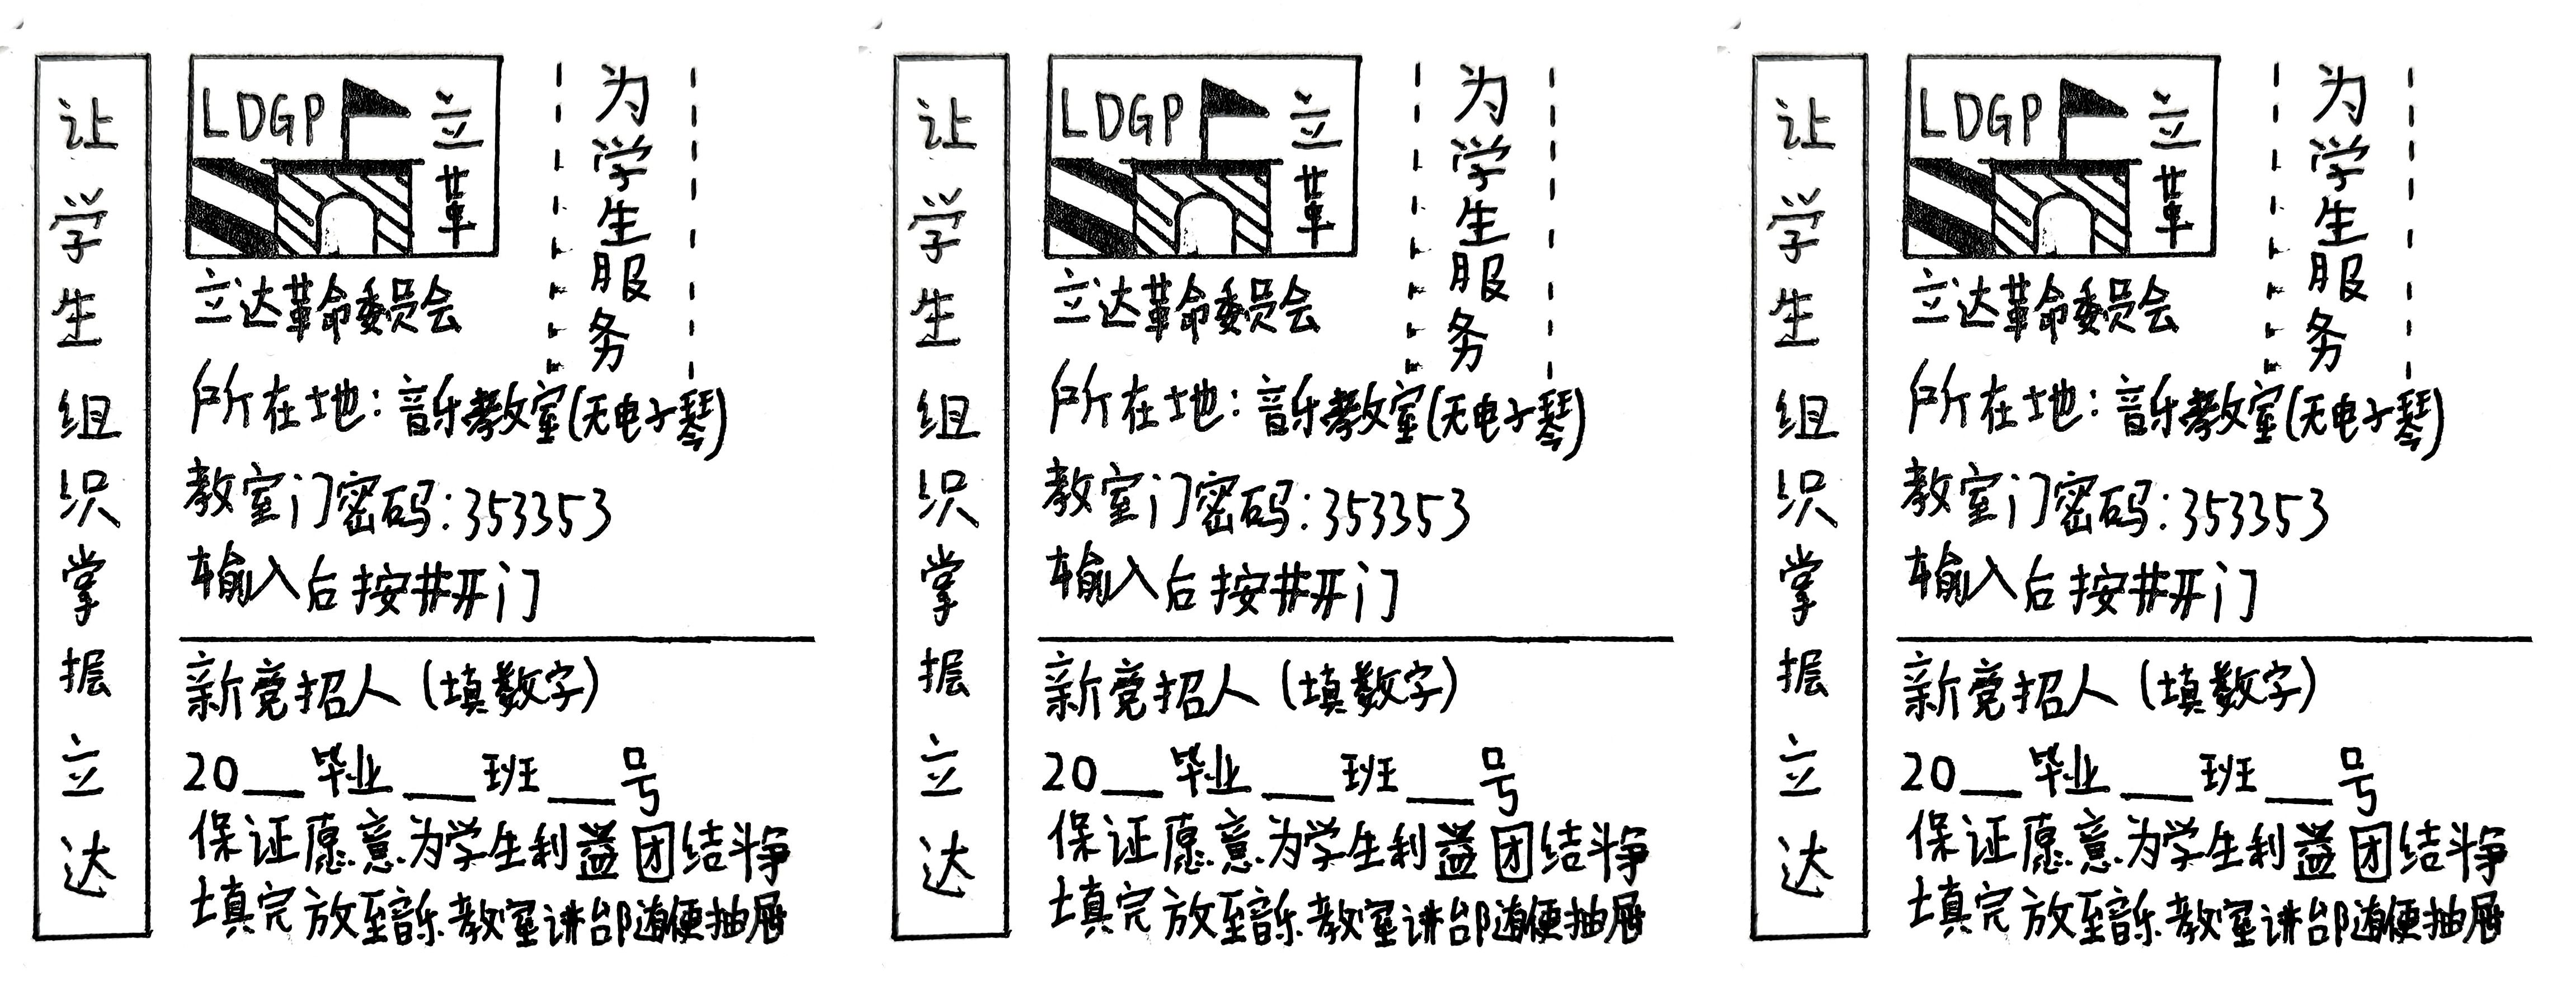 让学生组织掌握立达
LDGP
立革
为学生服务
立达革命委员会
所在地：音乐教室(无电子琴)
教室门密码：353353
输入后按#开门
新竞招人(填数字)
20__毕业__班__号
保证愿意为学生利益团结斗争
填完放至音乐教室讲台随便抽屉
让学生组织掌握立达
LDGP
立革
为学生服务
立达革命委员会
所在地：音乐教室(无电子琴)
教室门密码：353353
输入后按#开门
新竞招人(填数字)
20__毕业__班__号
保证愿意为学生利益团结斗争
填完放至音乐教室讲台随便抽屉
让学生组织掌握立达
LDGP
立革
为学生服务
立达革命委员会
所在地：音乐教室(无电子琴)
教室门密码：353353
输入后按#开门
新竞招人(填数字)
20__毕业__班__号
保证愿意为学生利益团结斗争
填完放至音乐教室讲台随便抽屉